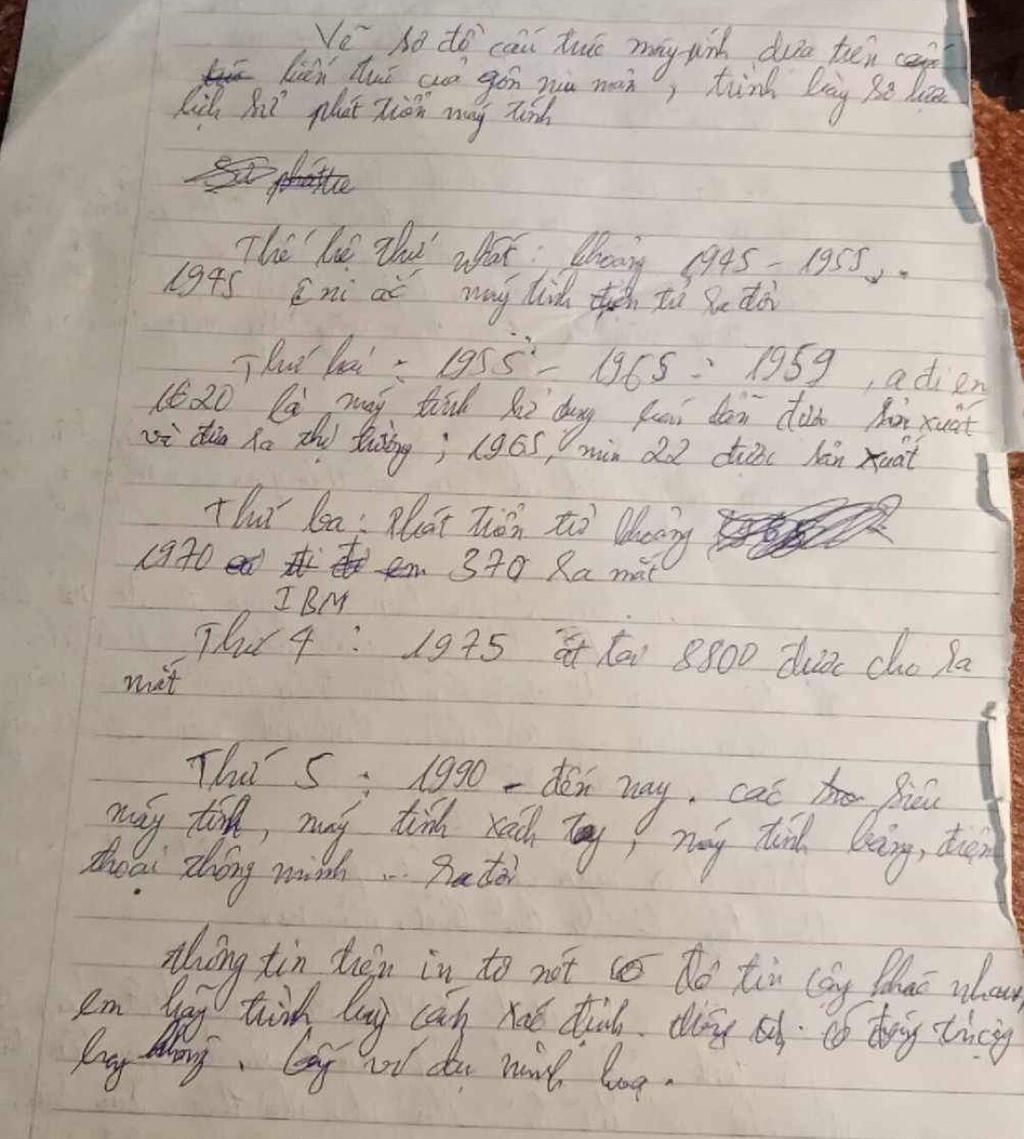 Vẽ sơ đồ cấu trúc máy tính dựa trên
kiến trúc của gôn niu man, trình bày sơ lược
lịch sử phát triển máy tính
Thế hệ thứ nhất: khoảng 1945 - 1955.
1945 Eni ắc máy tính điện tử ra đời
Thứ hai: 1955 - 1965: 1959, ađien
1620 là máy tính sử dụng bán dẫn được sản xuất
và đưa ra thị trường; 1965, min 22 được sản xuất
Thứ ba: Phát triển từ khoảng
1970 370 ra mắt
IBM
Thứ 4: 1975 át tai 8800 được cho ra
mắt
Thứ 5: 1990 - đến nay. các siêu
máy tính, máy tính xách tay, máy tính bảng, điện
thoại thông minh ... ra đời
thông tin trên in tơ nét có độ tin cậy khác nhau,
em hãy trình bày cách xác định thông tin có đáng tin cậy
hay không. Lấy ví dụ minh hoạ.